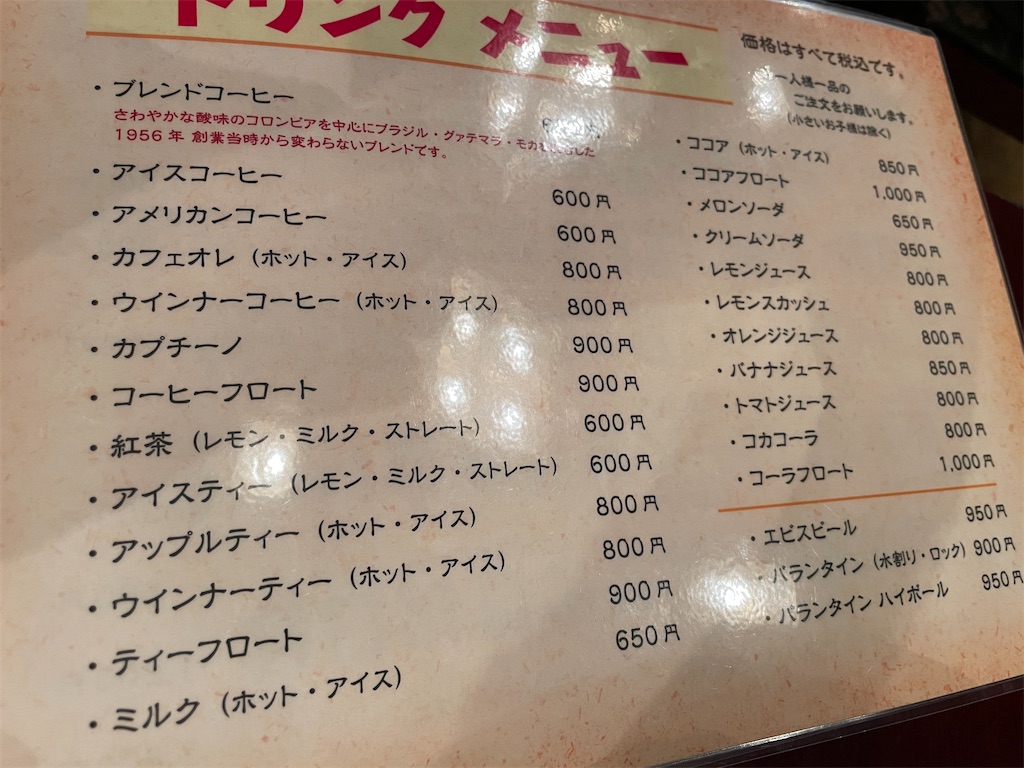 ドリンク メニュー
・ブレンドコーヒー
さわやかな酸味のコロンビアを中心にブラジル・グァテマラ・モカを
1956年 創業当時から変わらないブレンドです。
・アイスコーヒー 600円
・アメリカンコーヒー 600円
・カフェオレ（ホット・アイス） 800円
・ウインナーコーヒー（ホット・アイス） 800円
・カプチーノ 900円
・コーヒーフロート 900円
・紅茶（レモン・ミルク・ストレート） 600円
・アイスティー（レモン・ミルク・ストレート） 600円
・アップルティー（ホット・アイス） 800円
・ウインナーティー（ホット・アイス） 800円
・ティーフロート 900円
・ミルク（ホット・アイス） 650円
価格はすべて税込です。
一人様一品の
ご注文をお願いします。
(小さいお子様は除く)
・ココア（ホット・アイス） 850円
・ココアフロート 1,000円
・メロンソーダ 650円
・クリームソーダ 950円
・レモンジュース 800円
・レモンスカッシュ 800円
・オレンジジュース 800円
・バナナジュース 850円
・トマトジュース 800円
・コカコーラ 800円
・コーラフロート 1,000円
・エビスビール 950円
・バランタイン（水割り・ロック） 900円
・バランタイン ハイボール 950円